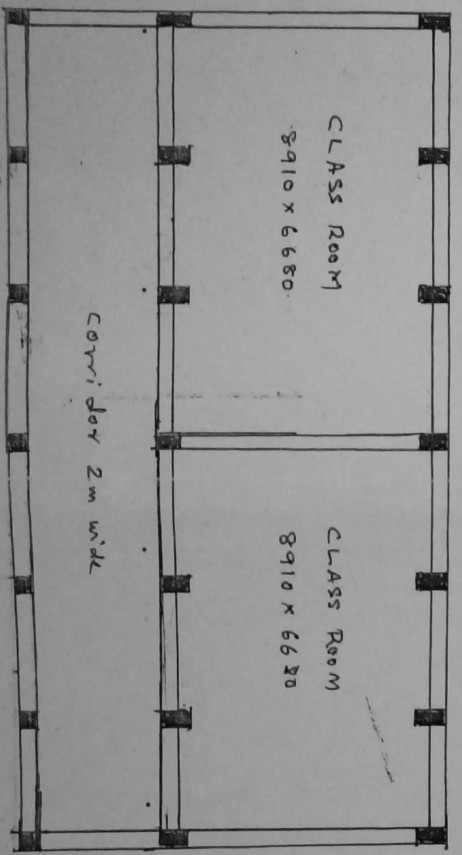 CLASS ROOM
8910 x 6680
CLASS ROOM
8910 x 6680
Corridor 2m wide